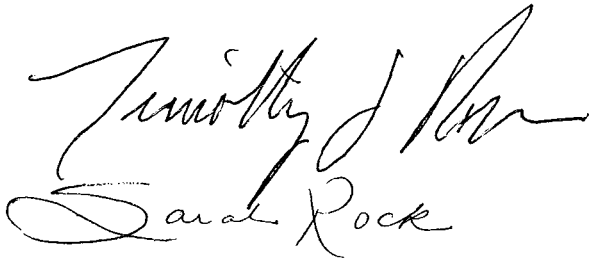 Timothy J
Sarah Rock